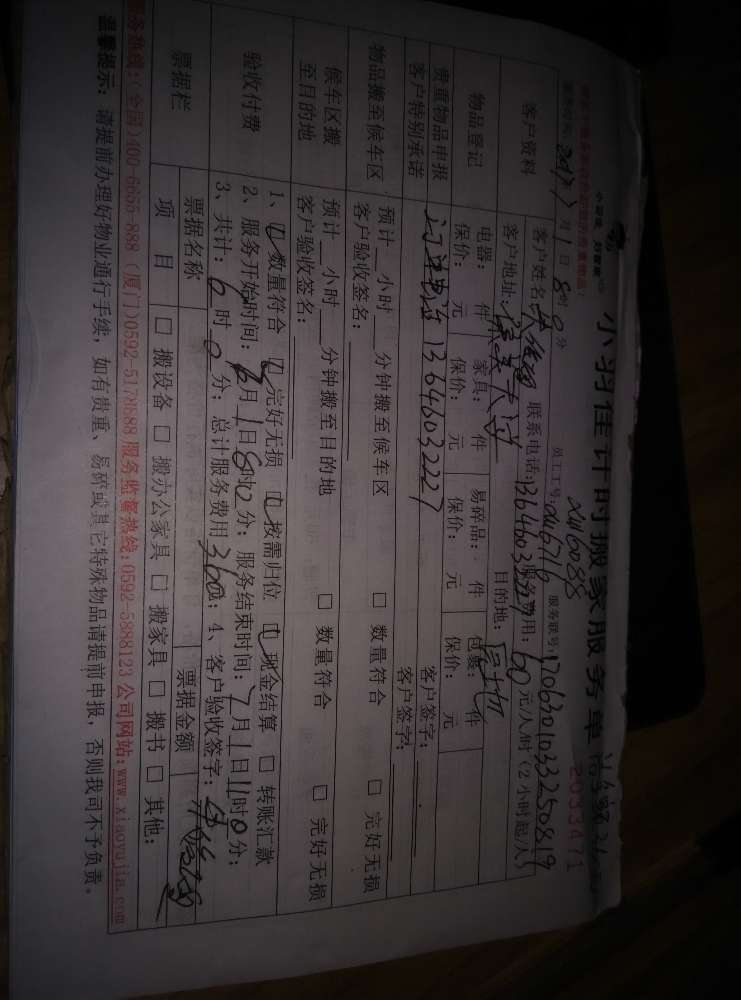 小羽佳计时搬家服务单
2033471
xm6088
服务时间: 2017年7月1日8时0分 员工工号: xm6716 服务联号: 17063010332508 19
客户资料
客户姓名: 联系电话: 13646032227 服务费用: 60元/人/时(2小时起/人)
客户地址: 目的地:
物品登记
电器: 件 家具: 件 易碎品: 件 包裹: 件
保价: 元 保价: 元 保价: 元 保价: 元
贵重物品申报 客户签字:
客户特别承诺 13646032227 客户签字:
物品搬至候车区
预计 小时 分钟搬至候车区 □ 数量符合 □ 完好无损
客户验收签名:
候车区搬至目的地
预计 小时 分钟搬至目的地 □ 数量符合 □ 完好无损
客户验收签名:
验收付费
1、☑ 数量符合 ☑ 完好无损 ☑ 按需归位 ☑ 现金结算 □ 转账汇款
2、服务开始时间: 7月1日8时0分; 服务结束时间: 7月1日11时0分;
3、共计: 6时0分; 总计服务费用360; 4、客户验收签字:
票据栏
票据名称 票据金额
项 目 □ 搬设备 □ 搬办公家具 □ 搬家具 □ 搬书 □ 其他:
服务热线:(全国)400-6655-888 (厦门)0592-5178688 服务监督热线:0592-5888123 公司网站:www.xiaoyujia.com
温馨提示: 请提前办理好物业通行手续, 如有贵重、易碎或其它特殊物品请提前申报, 否则我司不予负责。